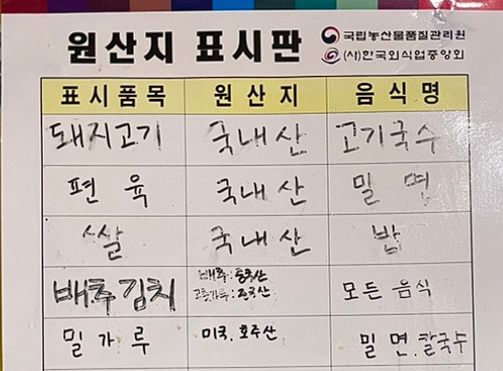 원산지 표시판
국립농산물품질관리원
(사)한국외식업중앙회
표시품목 원산지 음식명
돼지고기 국내산 고기국수
편육 국내산 밀면
쌀 국내산 밥
배추김치 배추:중국산 고춧가루:중국산 모든 음식
밀가루 미국.호주산 밀면.칼국수